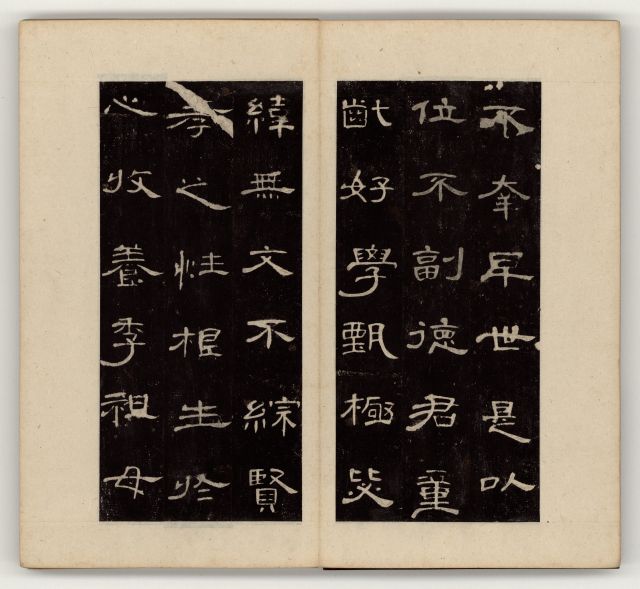 不幸早世是以
位不副德君童
齔好學甄極毖
緯無文不綜賢
孝之性根生於
心收養季祖母